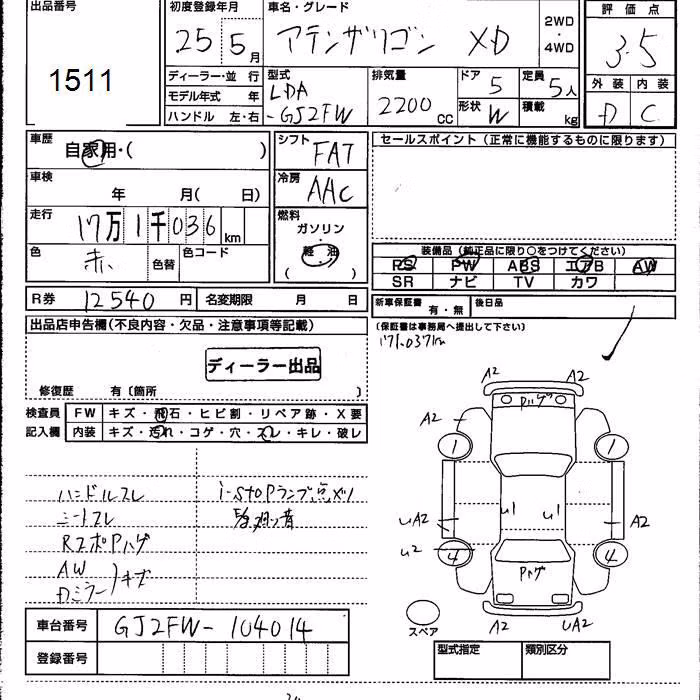 出品番号
1511
初度登録年月
25年5月
車名・グレード
アテンザワゴン XD
2WD
・
4WD
評価点
3.5
外装 内装
D C
ディーラー・並行
モデル年式 年
ハンドル 左・右
型式
LDA
-GJ2FW
排気量
2200 CC
ドア
5
形状
W
定員
5人
積載
kg
車歴
自家用・( )
車検
年 月( 日)
走行
17万1千036km
色
赤
色替
色コード
シフト
FAT
冷房
AAC
燃料
ガソリン
・
軽油
( )
セールスポイント (正常に機能するものに限ります)
装備品 (純正品に限り○をつけてください)
PS PW ABS エアB AW
SR ナビ TV カワ
R券 12540円 名変期限 月 日
新車保証書
有・無
後日品
(保証書は事務局へ提出して下さい)
171,037km
出品店申告欄(不良内容・欠品・注意事項等記載)
ディーラー出品
修復歴 有〔箇所 〕
検査員
記入欄
FW キズ・飛石・ヒビ割・リペア跡・X要
内装 キズ・汚れ・コゲ・穴・スレ・キレ・破レ
ハンドルスレ
シートスレ
RスポPハゲ
AW
Dミラー キズ
i-stopランプ点メツ
A2 A2
A2
Pハゲ
1 1
u1 u1
uA2 A2
u2
4 4
Pハゲ
A2 UA2
スペア
車台番号 GJ2FW-104014
登録番号
型式指定 類別区分